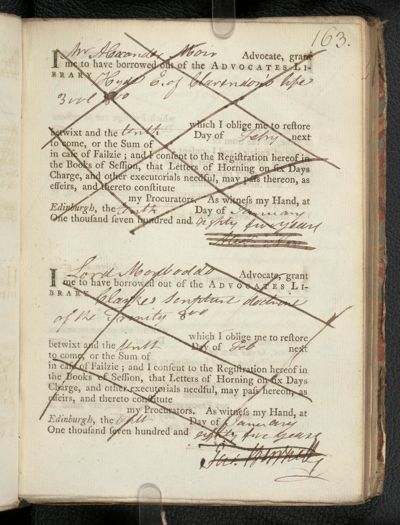 163.
I Mr Alexander Moir Advocate, grant
me to have borrowed out of the ADVOCATES LI-
BRARY Hyde E. of Clarendon's life
3 vol 8vo
which I oblige me to reſtore
betwixt and the tenth Day of Febry next
to come, or the Sum of
in caſe of Failzie; and I conſent to the Regiſtration hereof in
the Books of Seſſion, that Letters of Horning on ſix Days
Charge, and other executorials needful, may paſs thereon, as
effeirs, and thereto conſtitute
my Procurators. As witneſs my Hand, at
Edinburgh, the tenth Day of January
One thouſand ſeven hundred and eighty five years
I Lord Monboddo Advocate, grant
me to have borrowed out of the ADVOCATES LI-
BRARY Clarkes Scripture doctrine
of the Trinity 8vo
which I oblige me to reſtore
betwixt and the tenth Day of Feb next
to come, or the Sum of
in caſe of Failzie; and I conſent to the Regiſtration hereof in
the Books of Seſſion, that Letters of Horning on ſix Days
Charge, and other executorials needful, may paſs hereon, as
effeirs, and thereto conſtitute
my Procurators. As witneſs my Hand, at
Edinburgh, the Day of January
One thouſand ſeven hundred and eighty five years
Jas. Burnett